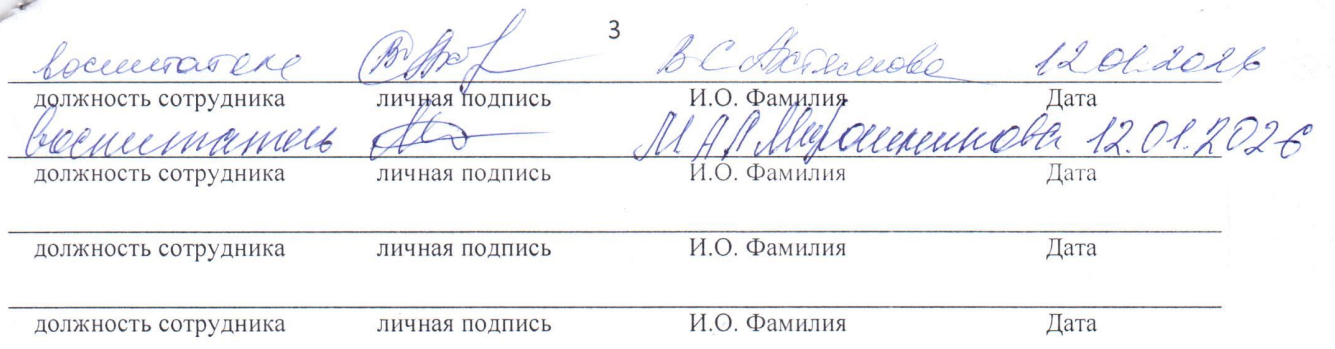 3
воспитатель В С Ахтямова 12.01.2026
должность сотрудника личная подпись И.О. Фамилия Дата
воспитатель М А Мирошникова 12.01.2026
должность сотрудника личная подпись И.О. Фамилия Дата
должность сотрудника личная подпись И.О. Фамилия Дата
должность сотрудника личная подпись И.О. Фамилия Дата